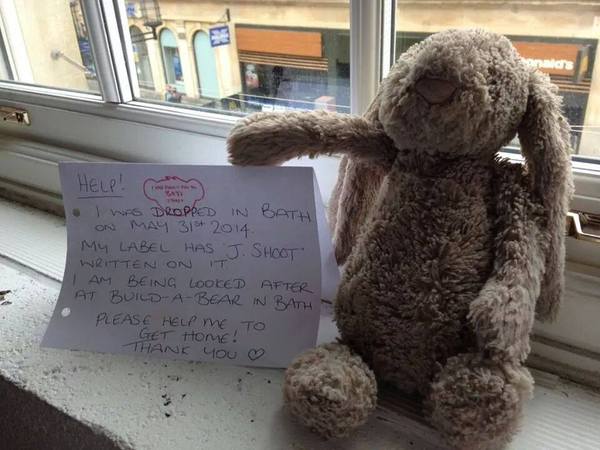 HELP!
I WAS DROPPED IN BATH
ON MAY 31st 2014.
MY LABEL HAS 'J. SHOOT'
WRITTEN ON IT
I AM BEING LOOKED AFTER
AT BUILD-A-BEAR IN BATH
PLEASE HELP ME TO
GET HOME!
THANK YOU ♡
onald's